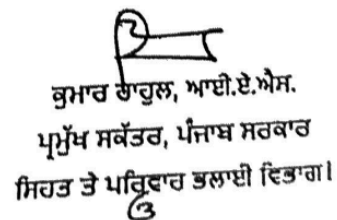 ਕੁਮਾਰ ਰਾਹੁਲ, ਆਈ.ਏ.ਐਸ.
ਪ੍ਰਮੁੱਖ ਸਕੱਤਰ, ਪੰਜਾਬ ਸਰਕਾਰ
ਸਿਹਤ ਤੇ ਪਰਿਵਾਰ ਭਲਾਈ ਵਿਭਾਗ।